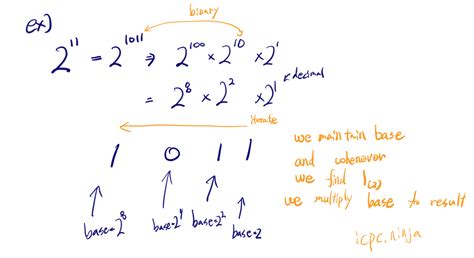 ex)
binary
2^11 = 2^1011 ⇒ 2^100 × 2^10 × 2^1
= 2^8 × 2^2 × 2^1 decimal
iterate
1 0 1 1
base=2^8 base=2^4 base=2^2 base=2
we maintain base
and whenever
we find 1(2)
we multiply base to result
icpc.ninja